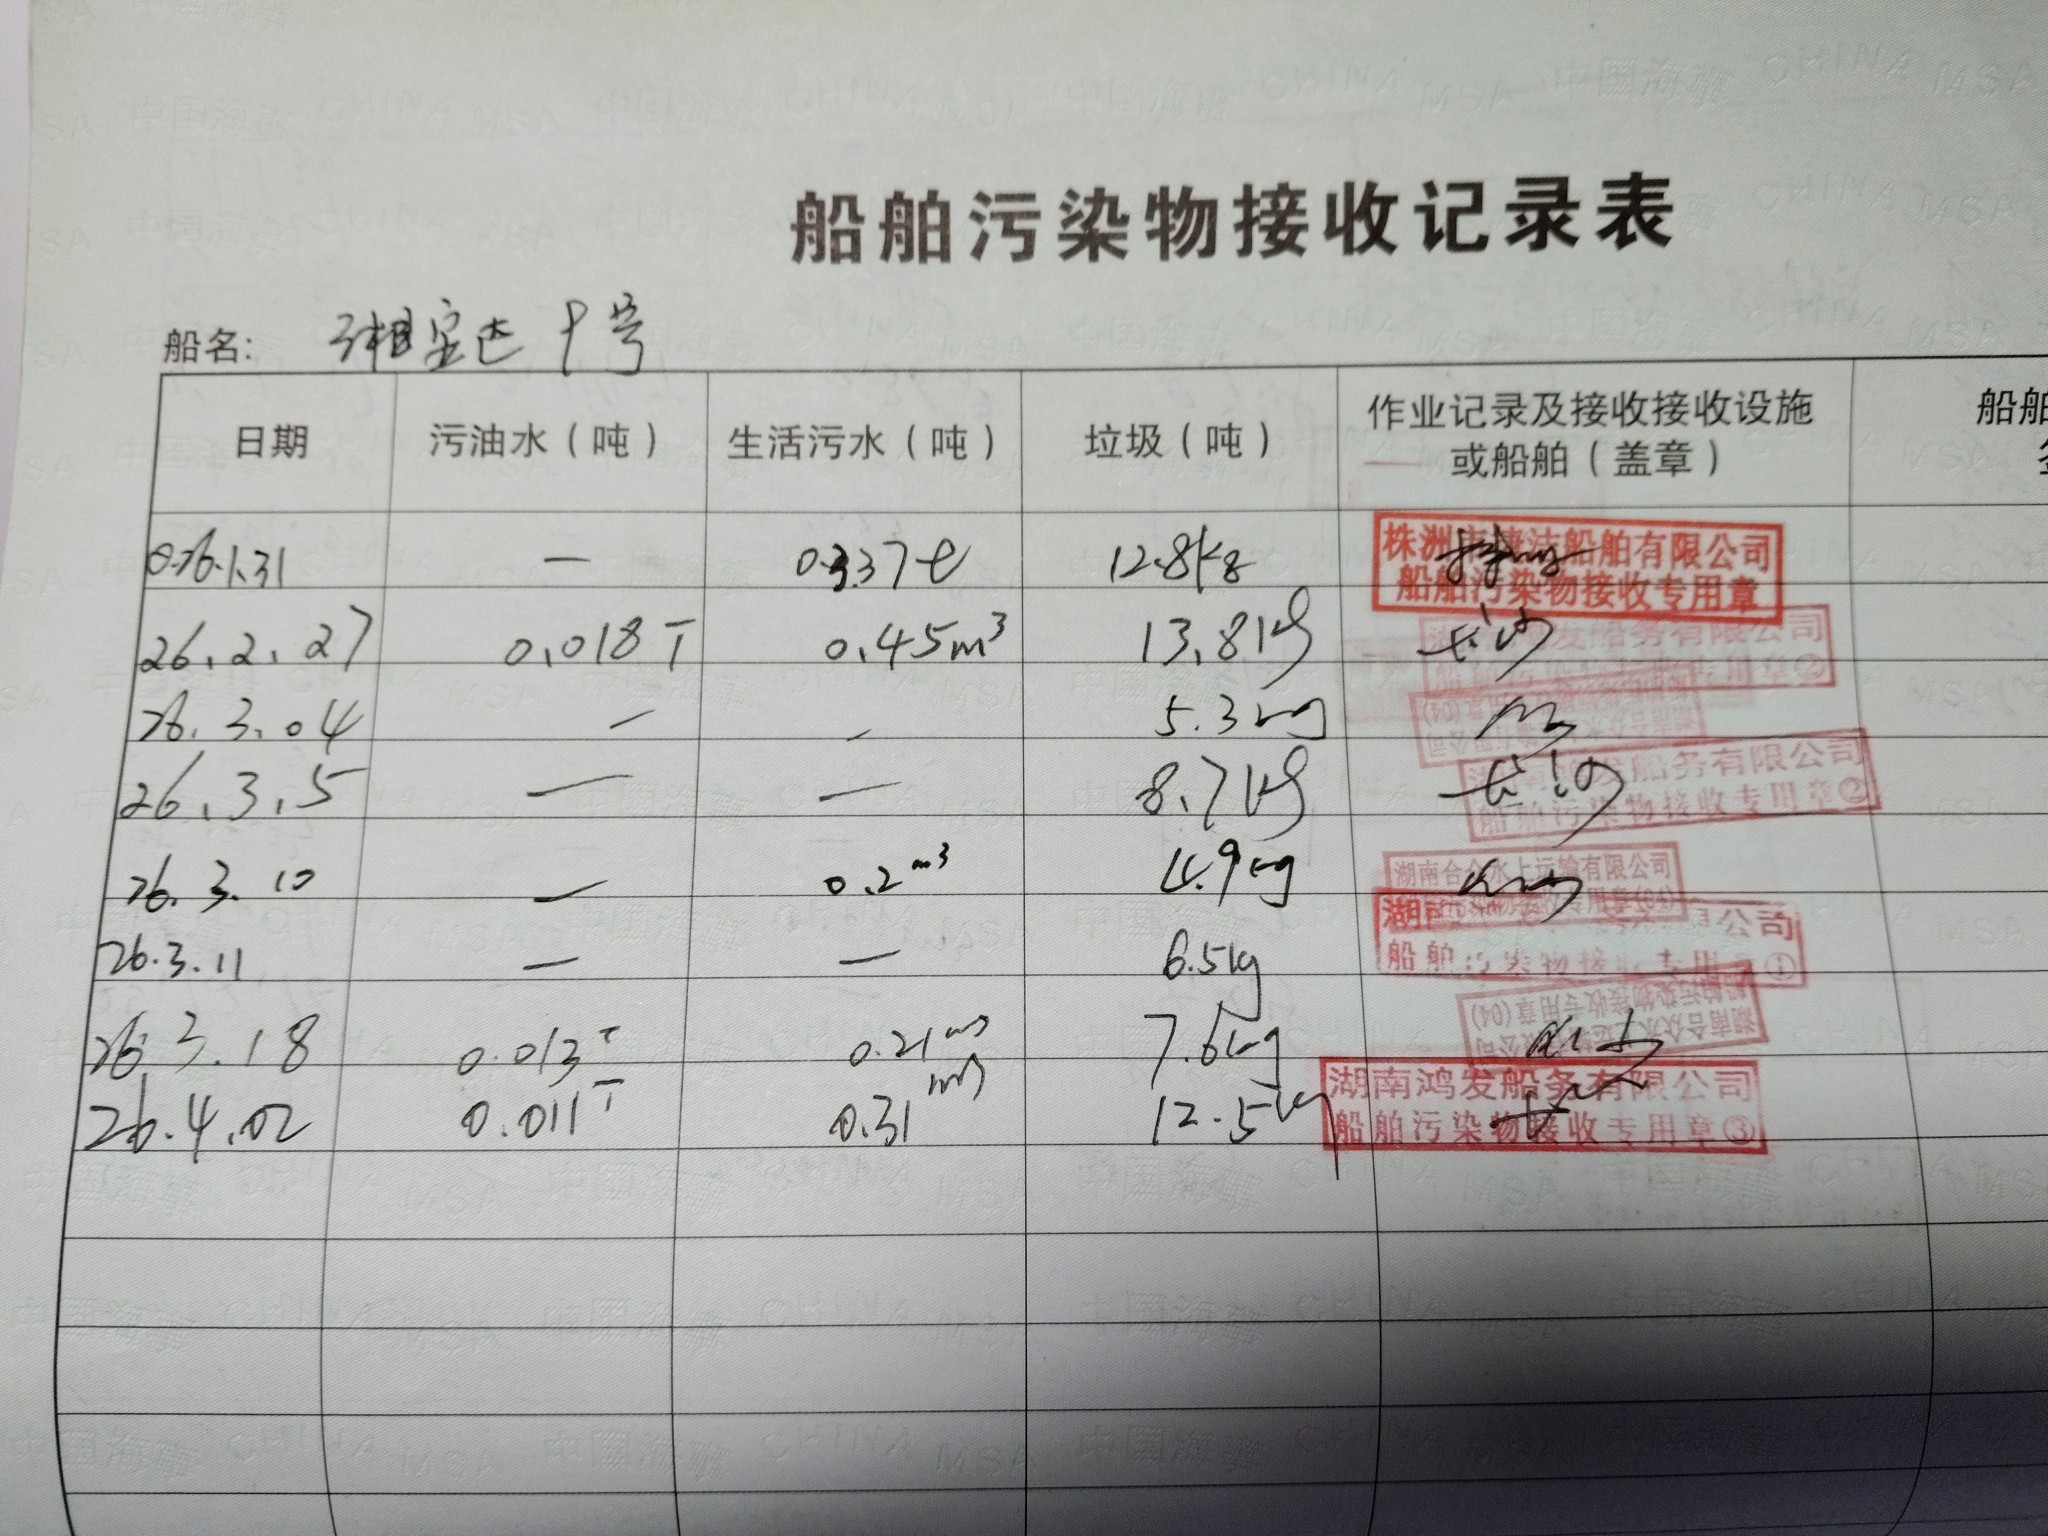 船舶污染物接收记录表
船名: 湘宏达十号
日期 污油水（吨） 生活污水（吨） 垃圾（吨） 作业记录及接收接收设施或船舶（盖章） 船舶
26.1.31 — 0.337t 12.8kg
株洲市清洁船舶有限公司
船舶污染物接收专用章
26.2.27 0.018T 0.45m³ 13.8kg 长沙
发船务有限公司
专用章②
26.3.04 — — 5.3kg
湖南合众水上运输有限公司
专用章(04)
26.3.5 — — 8.7kg 长沙
发船务有限公司
船舶污染物接收专用章②
26.3.10 — 0.2m³ 4.9kg
湖南合众水上运输有限公司
污染物接收专用章(04)
26.3.11 — — 6.5kg
湖 公司
船舶污染物接收专用 ①
26.3.18 0.013T 0.21m³ 7.6kg
湖南合众水上运输有限公司
船舶污染物接收专用章(04)
26.4.02 0.011T 0.31m³ 12.5kg
湖南鸿发船务有限公司
船舶污染物接收专用章③
中国海事 CHINA MSA